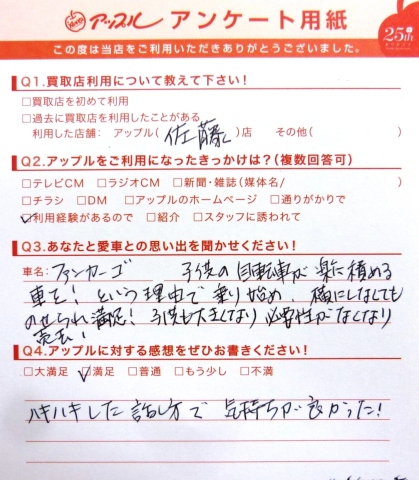 アップル アンケート用紙
25th
この度は当店をご利用いただきありがとうございました。
Q1.買取店利用について教えて下さい!
□買取店を初めて利用
□過去に買取店を利用したことがある
利用した店舗: アップル(佐藤)店 その他( )
Q2.アップルをご利用になったきっかけは?(複数回答可)
□テレビCM □ラジオCM □新聞・雑誌(媒体名/ )
□チラシ □DM □アップルのホームページ □通りがかりで
☑利用経験があるので □紹介 □スタッフに誘われて
Q3.あなたと愛車との思い出を聞かせてください!
車名: ファンカーゴ 子供の自転車が楽に積める
車を!という理由で乗り始め、横にしなくても
のせられ満足!子供も大きくなり必要性がなくなり
売去!
Q4.アップルに対する感想をぜひお書きください!
□大満足 ☑満足 □普通 □もう少し □不満
ハキハキした話し方で 気持ちが良かった!